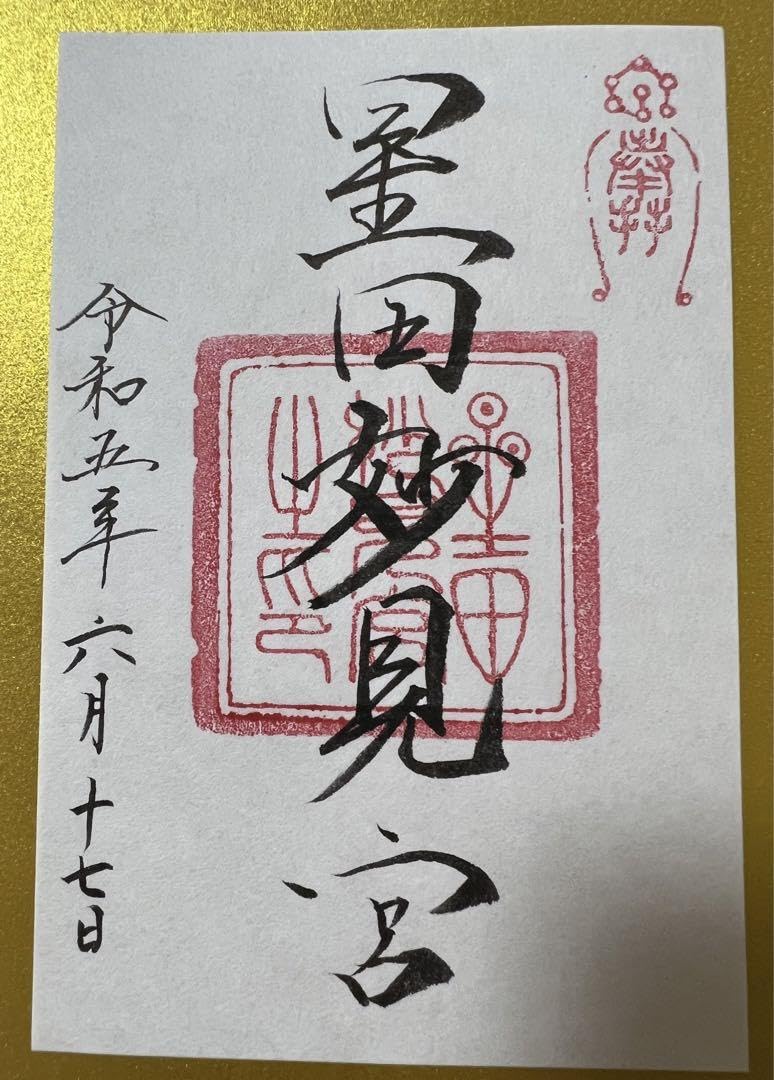 星田妙見宮
令和五年六月十七日